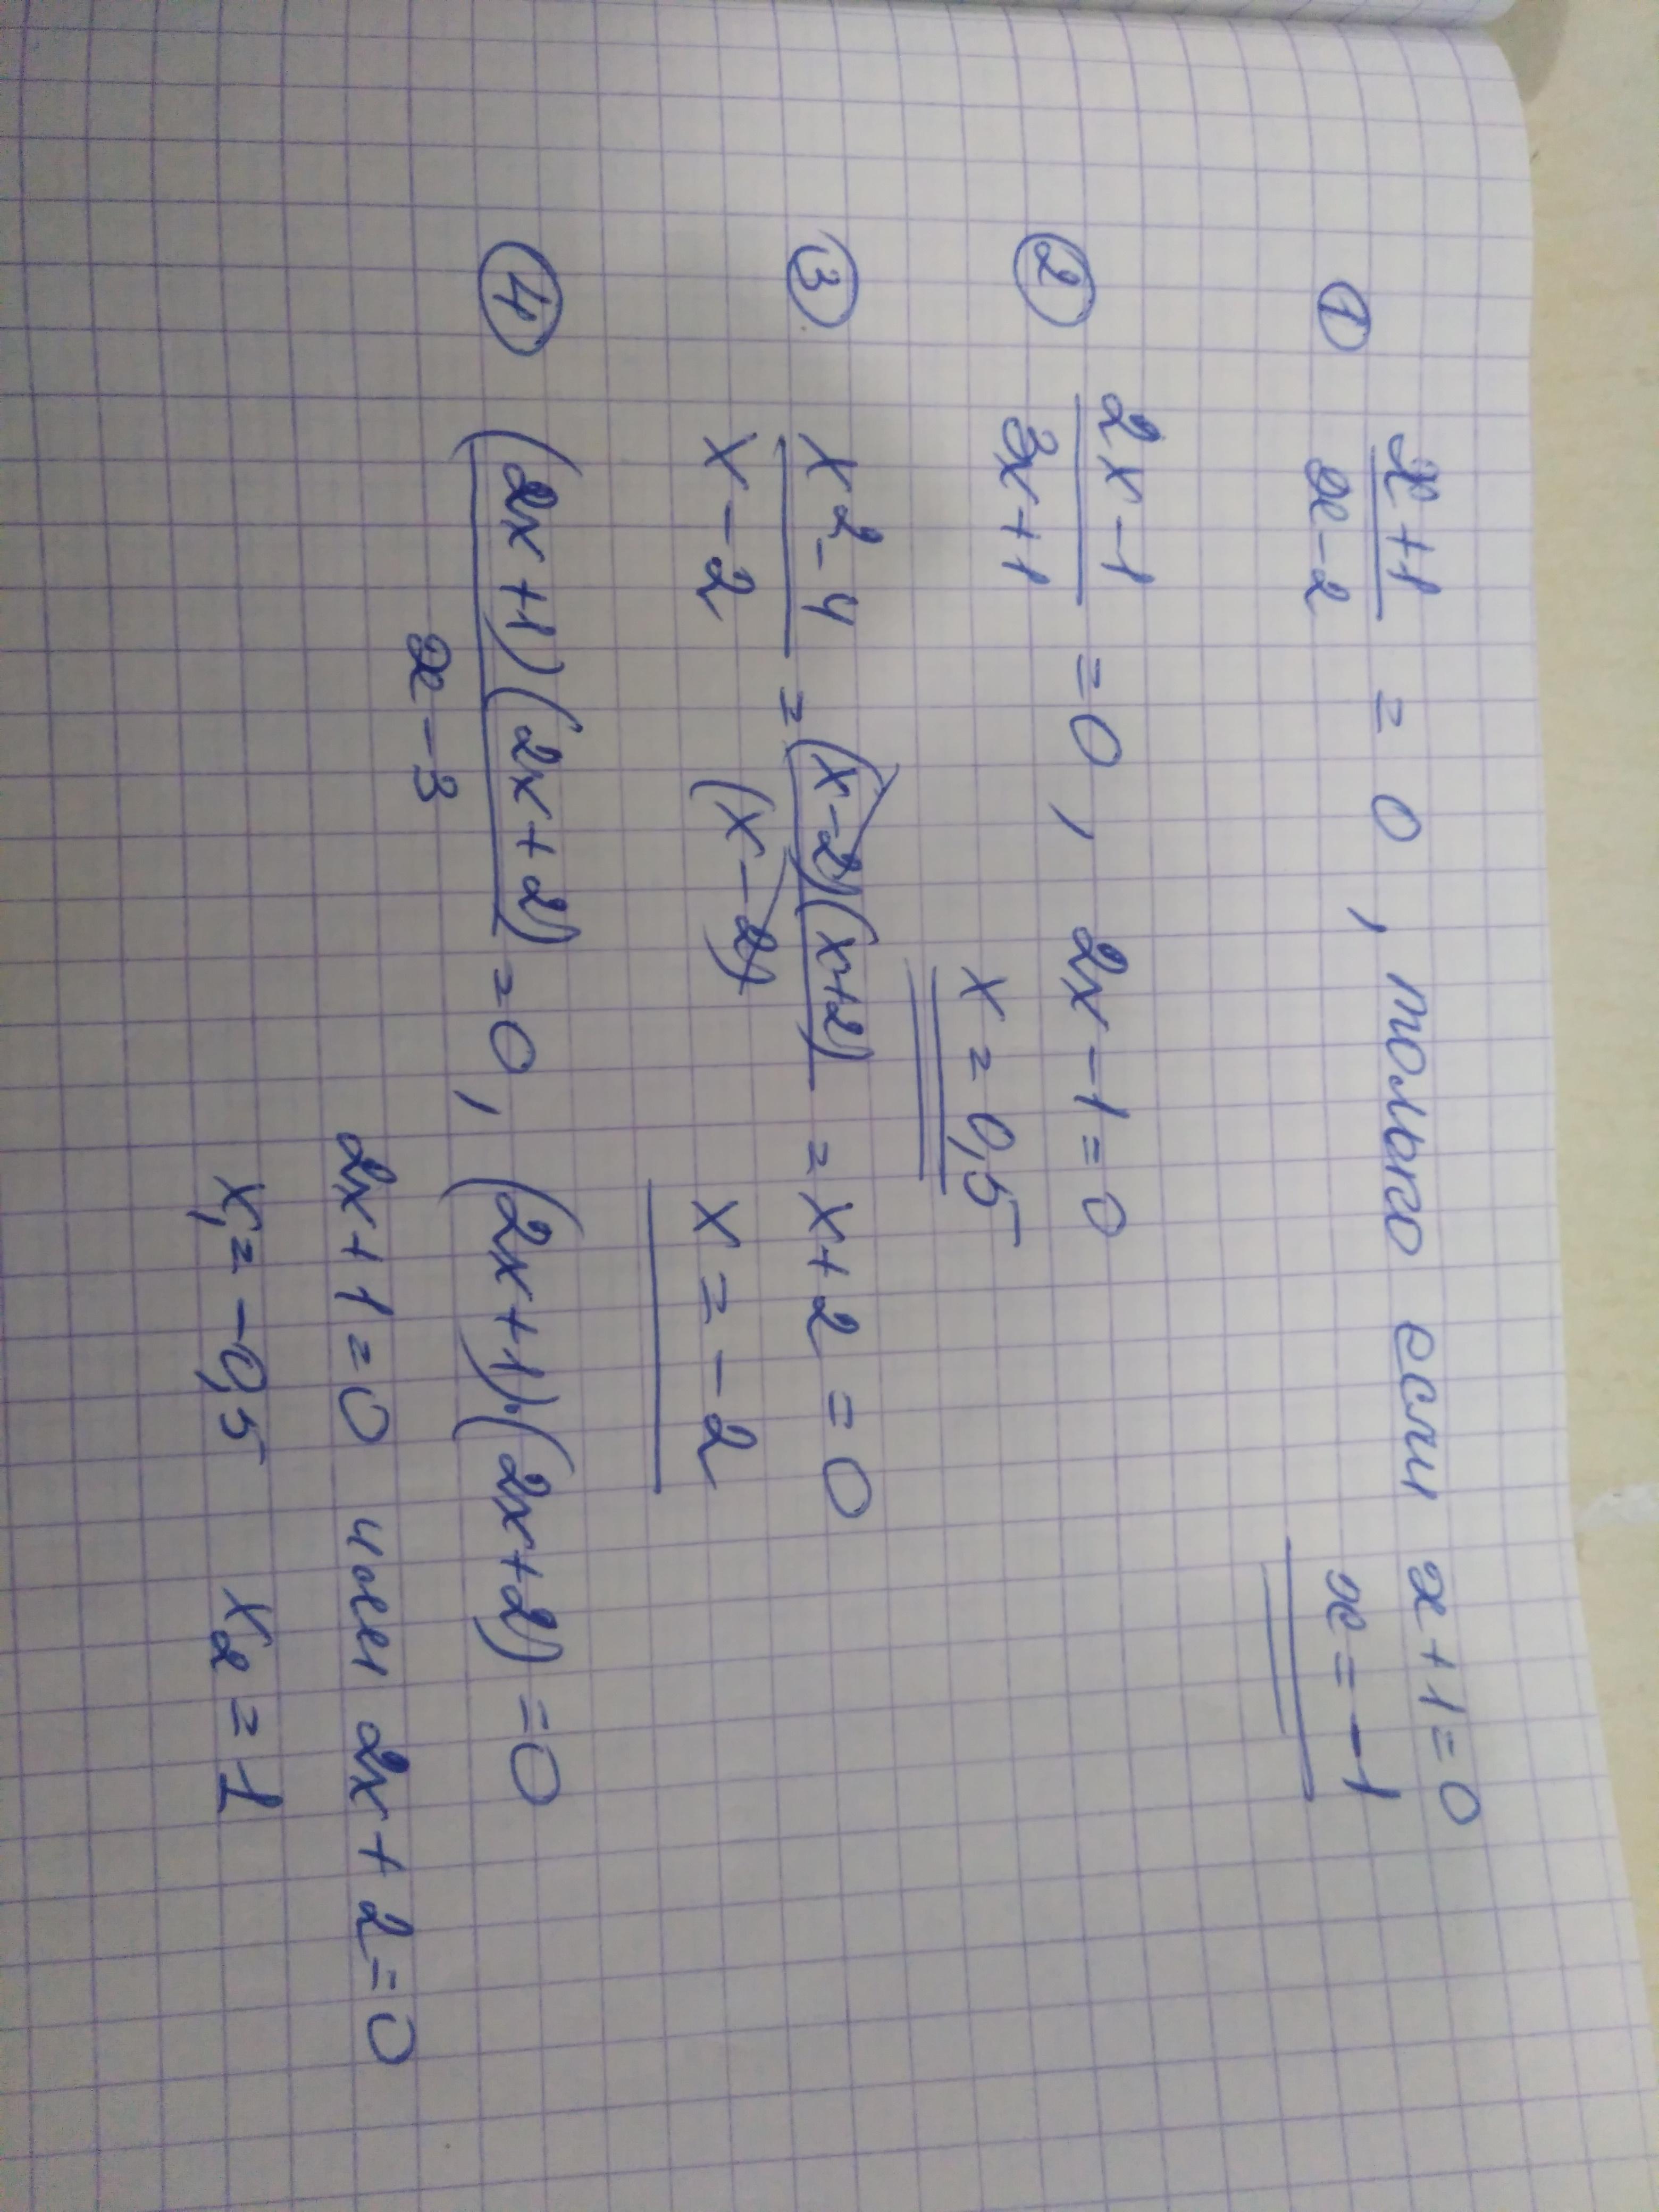 ① x+1/x-2 = 0, только если x+1=0
x = -1
② 2x-1/3x+1 = 0, 2x-1=0
x = 0,5
③ x²-4/x-2 = (x-2)(x+2)/(x-2) = x+2 = 0
x = -2
④ (2x+1)(2x+2)/x-3 = 0, (2x+1)·(2x+2) = 0
2x+1=0 или 2x+2=0
x₁ = -0,5 x₂ = 1